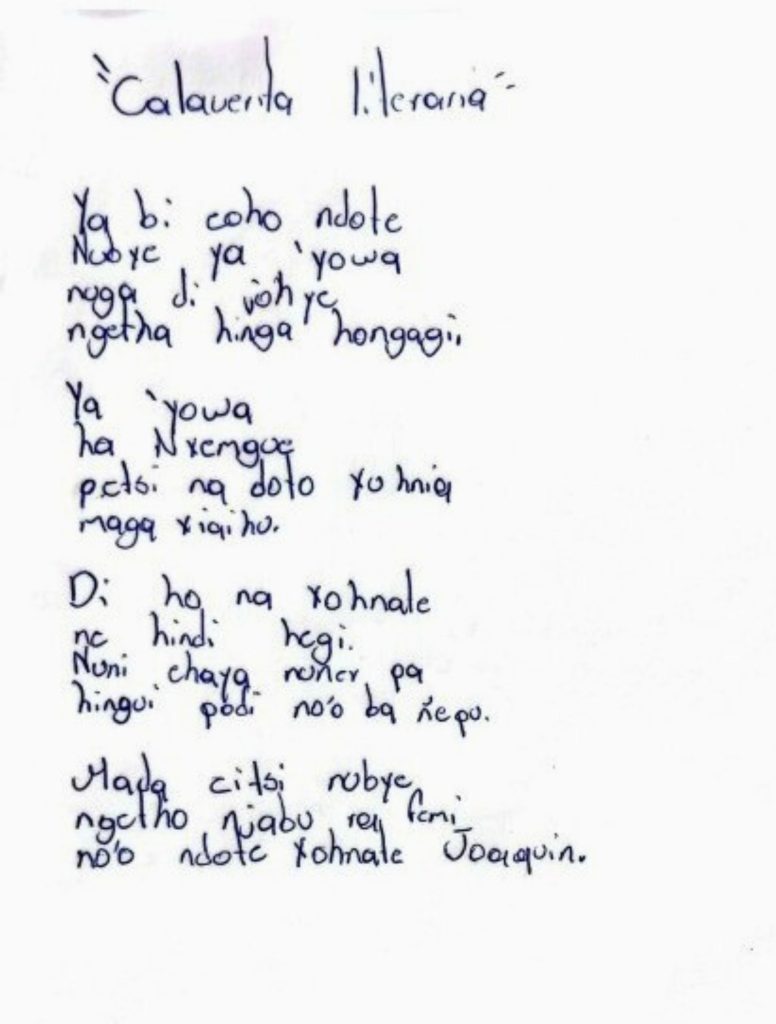 "Calaverita literaria"
Ya bi coho ndote
Nubye ya 'yowa
nuga di johye
ngetha hinga hongagii
Ya 'yowa
ha Nxemgue
petsi na doto xohnia
maga xiqihu.
Di ho na xohnate
ne hindi hegi.
Nuni chaya nuner pa
hingui podi no'o ba ñepu.
Mada citsi nubye
ngetho njabu rey femi
no'o ndote xohnate Joaquin.